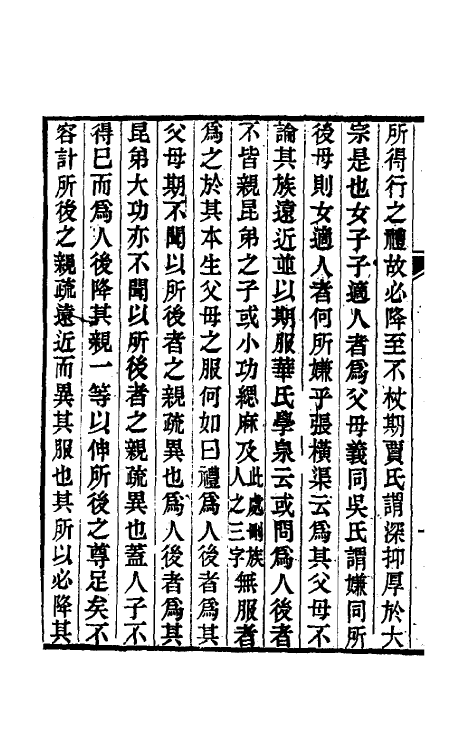 所得行之禮故必降至不杖期賈氏謂深抑厚於大
宗是也女子子適人者爲父母義同吳氏謂嫌同所
後母則女適人者何所嫌乎張橫渠云爲其父母不
論其族遠近並以期服華氏學泉云或問爲人後者
不皆親昆弟之子或小功緦麻及此處刪族人之三字無服者
爲之於其本生父母之服何如曰禮爲人後者爲其
父母期不聞以所後者之親疏異也爲人後者爲其
昆弟大功亦不聞以所後者之親疏異也蓋人子不
得已而爲人後降其親一等以伸所後之尊足矣不
容計所後之親疏遠近而異其服也其所以必降其